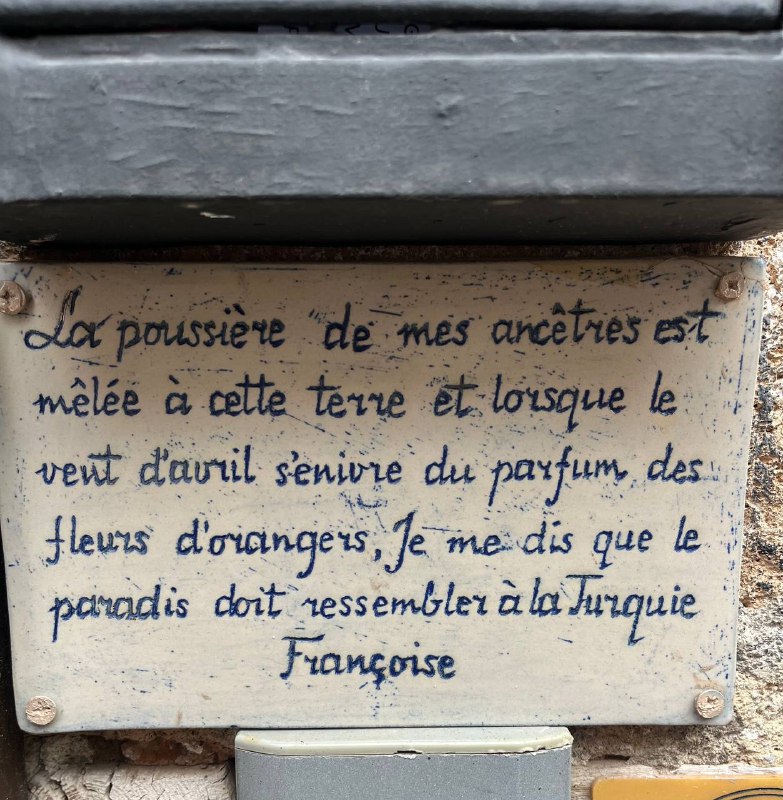 La poussière de mes ancêtres est
mêlée à cette terre et lorsque le
vent d'avril s'enivre du parfum des
fleurs d'orangers, Je me dis que le
paradis doit ressembler à la Turquie
Françoise